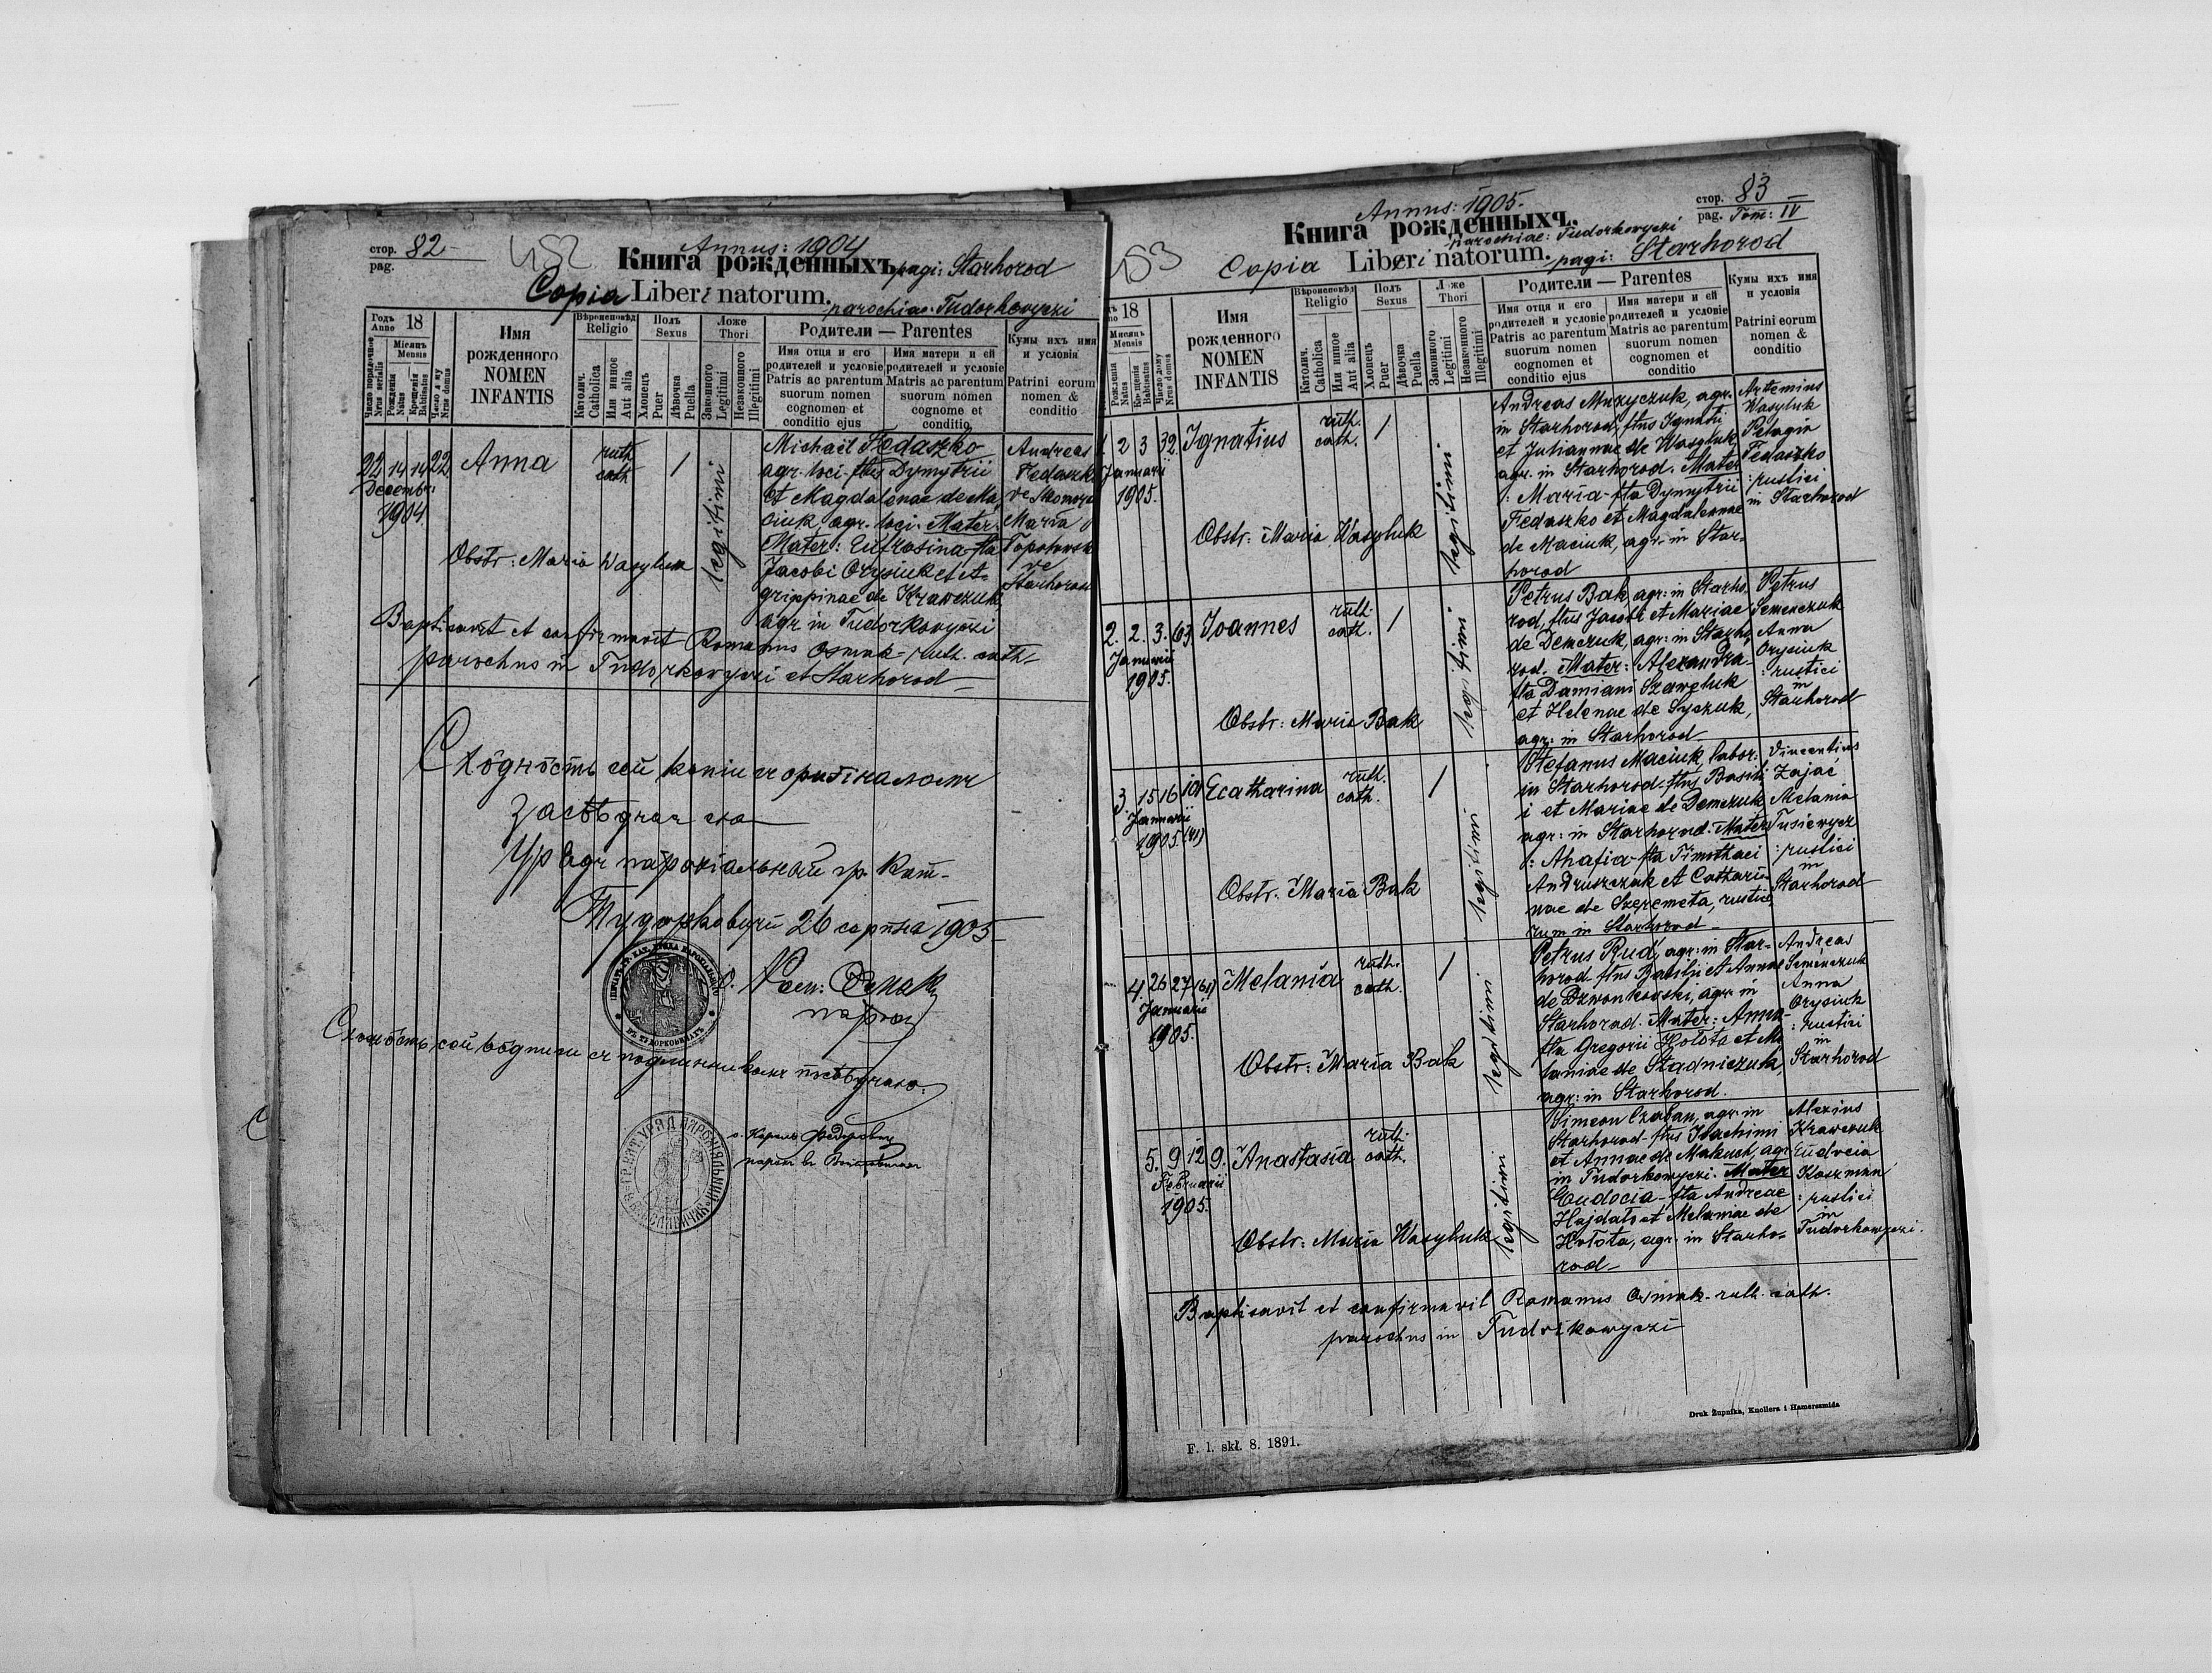 стор. 82
pag.
452
Annus: 1904
Книга рожденныхъ pagi: Starhorod
Copia Liberi natorum.
parochiae: Tudorkowyczi
Годъ Anno 18
Число порядочное
Nrus serialis
Місяць
Mensis
Рождения
Natus
Крещенія
Babtisatus
Nrus domus
Имя
рожденного
NOMEN
INFANTIS
Вѣроисповѣд
Religio
Католич.
Catholica
Или инное
Aut alia
Полъ
Sexus
Хлопець
Puer
Дѣвочка
Puella
Ложе
Thori
Законного
Legitimi
Незаконного
Illegitimi
Родители — Parentes
Имя отця и его
родителей и условіе
Patris ac parentum
suorum nomen
cognomen et
conditio ejus
Имя матери и ей
родителей и условіе
Matris ac parentum
suorum nomen
cognome et
conditio
Кумы ихъ имя
и условія
Patrini eorum
nomen &
conditio
22 14 14 22
Decembr.
1904
Anna
ruth.
cath
/
legitimi
Michael Fedaszko
agr. loci. ftus Dymytrii
et Magdalenae de Ma
ciuk, agr. loci. Mater:
Mater: Eufrosina-fta
Jacobi Orysiuk et A-
grippinae de Krawczuk
agr in Tudorkowyczi
Andreas
Fedaszko
Maria
de
Starhorod
Obstr: Maria Wasyluk
Baptisavit et confirmavit Romanus Osmak-ruth. cath-
parochus in Tudorkowyczi et Starhorod
Сходнôсть сеи копіи съ оригіналомъ
засвѣдчає ся
Урядъ парохіальный гр. кат.
Тудорковичи 26 серпня 1905
о. Ром. Осмак
парох
о. Кароль Федорович
парох
стор. 83
pag. Tom: IV
453
Annus: 1905.
Книга рожденныхъ.
parochiae: Tudorkowyczi
Copia Liberi natorum. pagi: Starhorod
18
Мисяць
Mensis
Рожденія
Natus
Babtisatus
Число дому
Nrus domus
Имя
рожденного
NOMEN
INFANTIS
Вѣроисповѣд
Religio
Католич.
Catholica
Или инное
Aut alia
Полъ
Sexus
Хлопець
Puer
Дѣвочка
Puella
Ложе
Thori
Законного
Legitimi
Незаконного
Illegitimi
Родители — Parentes
Имя отца и его
родителей и условіе
Patris ac parentum
suorum nomen
cognomen et
conditio ejus
Имя матери и ей
родителей и условіе
Matris ac parentum
suorum nomen
cognomen et
conditio
Кумы ихъ имя
и условія
Patrini eorum
nomen &
conditio
1. 2 3 32.
Januarii
1905.
Ignatius
ruth.
cath.
/
legitimi
Andreas Muzyczuk, agr.
in Starhorod, ftus Ignatii
et Juliannae de Wasyluk
agr. in Starhorod. Mater
: Maria-fta Dymytrii
Fedaszko et Magdalenae
de Maciuk, agr. in Star-
horod
Artemius
Wasyluk
Pelagia
Fedaszko
: rustici
in Starhorod
Obstr: Maria Wasyluk
2. 2. 3. (63)
Januarii
1905.
Joannes
ruth.
cath.
/
legitimi
Petrus Bak, agr: in Starho
rod, ftus Jacobi et Mariae
de Demczuk, agr: in Starho
rod. Mater: Alexandra-
fta Damiani Szaweluk
et Helenae de Syczuk,
agr: in Starhorod
Petrus
Semenczuk
Anna
Orysiuk
: rustici
in
Starhorod
Obstr: Maria Bak
3. 15 16 101
Januarii
1905. (41)
Ecatharina
ruth.
cath.
/
legitimi
Stefanus Maciuk, labor:
in Starhorod-ftus Basili
i et Mariae de Demczuk
agr: in Starhorod: Mater
: Ahafia-fta Timothaei
Andruszczak et Cathari
nae de Szeremeta, rustico
rum in Starhorod
Vincentius
Zając
Melania
Tusiewycz
: rustici
in
Starhorod
Obstr: Maria Bak
4. 26 27 (61)
Januarii
1905.
Melania
ruth.
cath.
/
legitimi
Petrus Rud', agr: in Star-
horod ftus Basilii et Annae
de Dzwonkowski, agr. in
Starhorod. Mater: Anna-
fta Gregorii Hołota et Me
laniae de Stadniczuk,
agr: in Starhorod.
Andreas
Semenczuk
Anna
Orysiuk
: rustici
in
Starhorod
Obstr: Maria Bak
5. 9 12 9.
Februarii
1905.
Anastasia
ruth.
cath.
legitimi
Simeon Czaban, agr. in
Starhorod-ftus Joachimi
et Annae de Makuch, agr
in Tudorkowyczi. Mater
Eudocia-fta Andreae
Hajdało et Melaniae de
Hołota, agr. in Starho-
rod
Alexius
Krawczuk
Eudocia
Koszman
: rustici
in
Tudorkowyczi.
Obstr: Maria Wasyluk
Baptisavit et confirmavit Romanus Osmak-ruth. cath.
parochus in Tudorkowyczi
Druk Żupnika, Knollera i Hamerszmida
F. l. skł. 8. 1891.